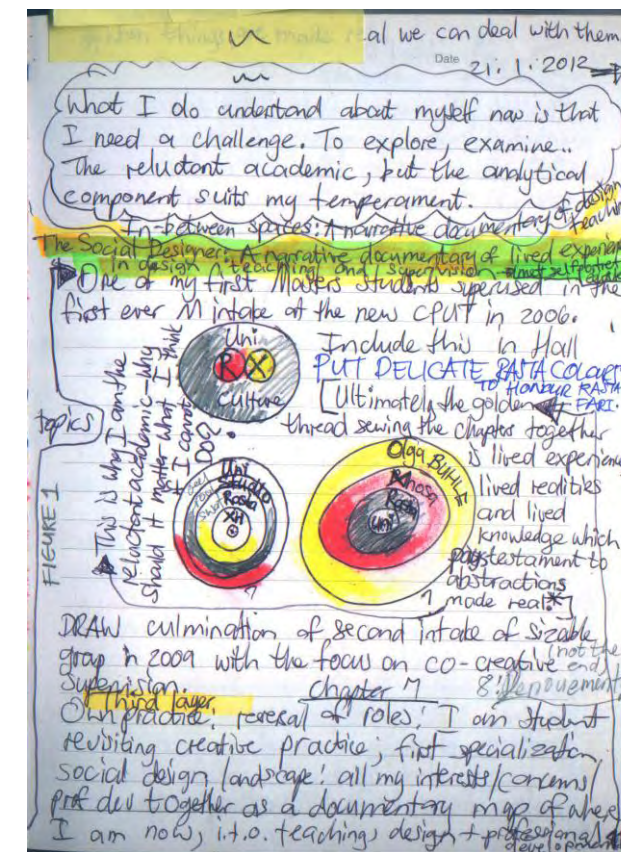 al we can deal with them
Date 21.1.2012
What I do understand about myself now is that
I need a challenge. To explore, examine..
The reluctant academic, but the analytical
component suits my temperament.
In-between spaces: A narrative documentary of design teaching
The Social Designer: A narrative documentary of lived experience
in design teaching and supervision
One of my first Masters Students supervised in the
first ever M intake at the new CPUT in 2006.
Uni
R X
Culture
Include this in Hall
PUT DELICATE RASTA COLOURS
TO HONOUR RASTA
FARI.
[Ultimately the golden
thread sewing the chapter together
is lived experience
lived realities
and lived
knowledge which
pays testament to
abstractions
made real.*]
topics
This is why I am the
reluctant academic - why
should it matter what I think
if I cannot
DO?
FIGURE 1
Uni
Studio
Rasta
XH
Olga BUHLE
Xhosa
Rasta
Uni
DRAW culmination of second intake of sizable
group in 2009 with the focus on co-creative
(not the end)
Supervision.
Chapter 7
8: Denouement
Third layer.
Own practice: reversal of roles: I am student
revisiting creative practice; first specialization,
social design landscape: all my interests/concerns/
prof dev together as a documentary map of where
I am now, i.t.o. teaching, design + professional
development